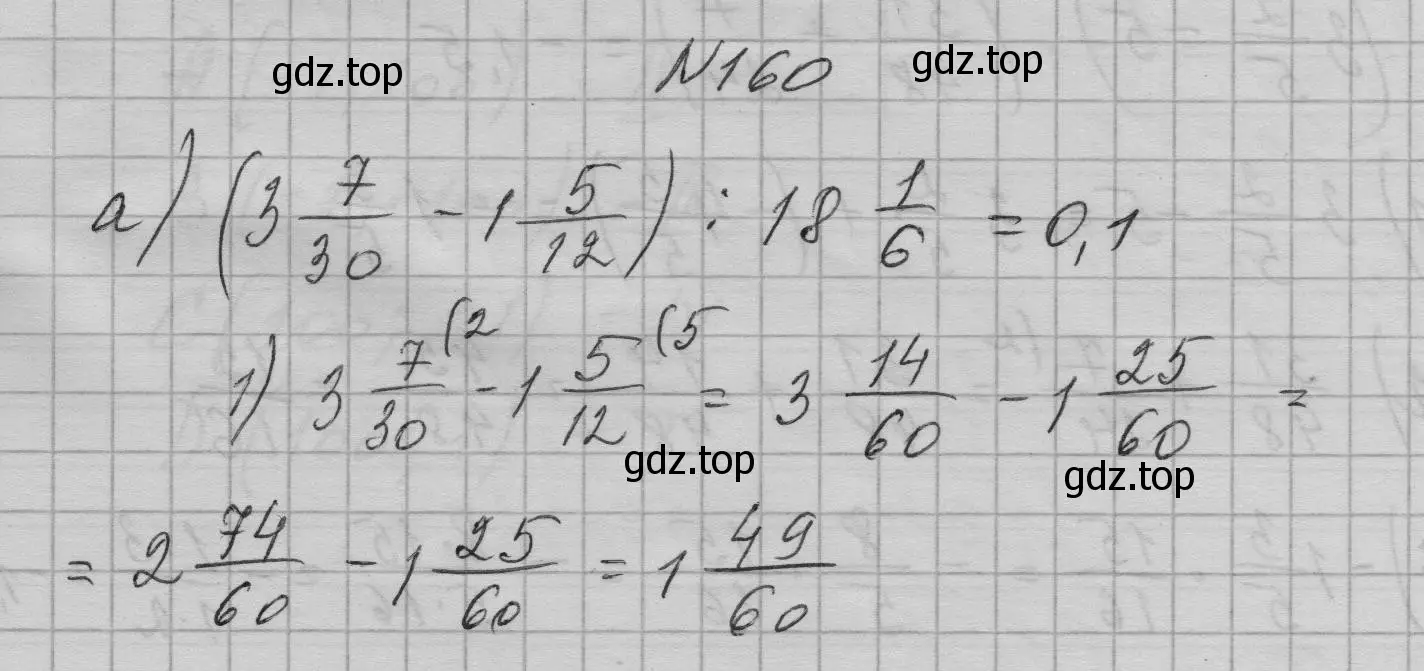 gdz.top N160 gdz.top
а) (3 7/30 - 1 5/12) : 18 1/6 = 0,1
1) 3 7/30 (2 - 1 5/12 (5 = 3 14/60 - 1 25/60 =
gdz.top gdz.top
= 2 74/60 - 1 25/60 = 1 49/60